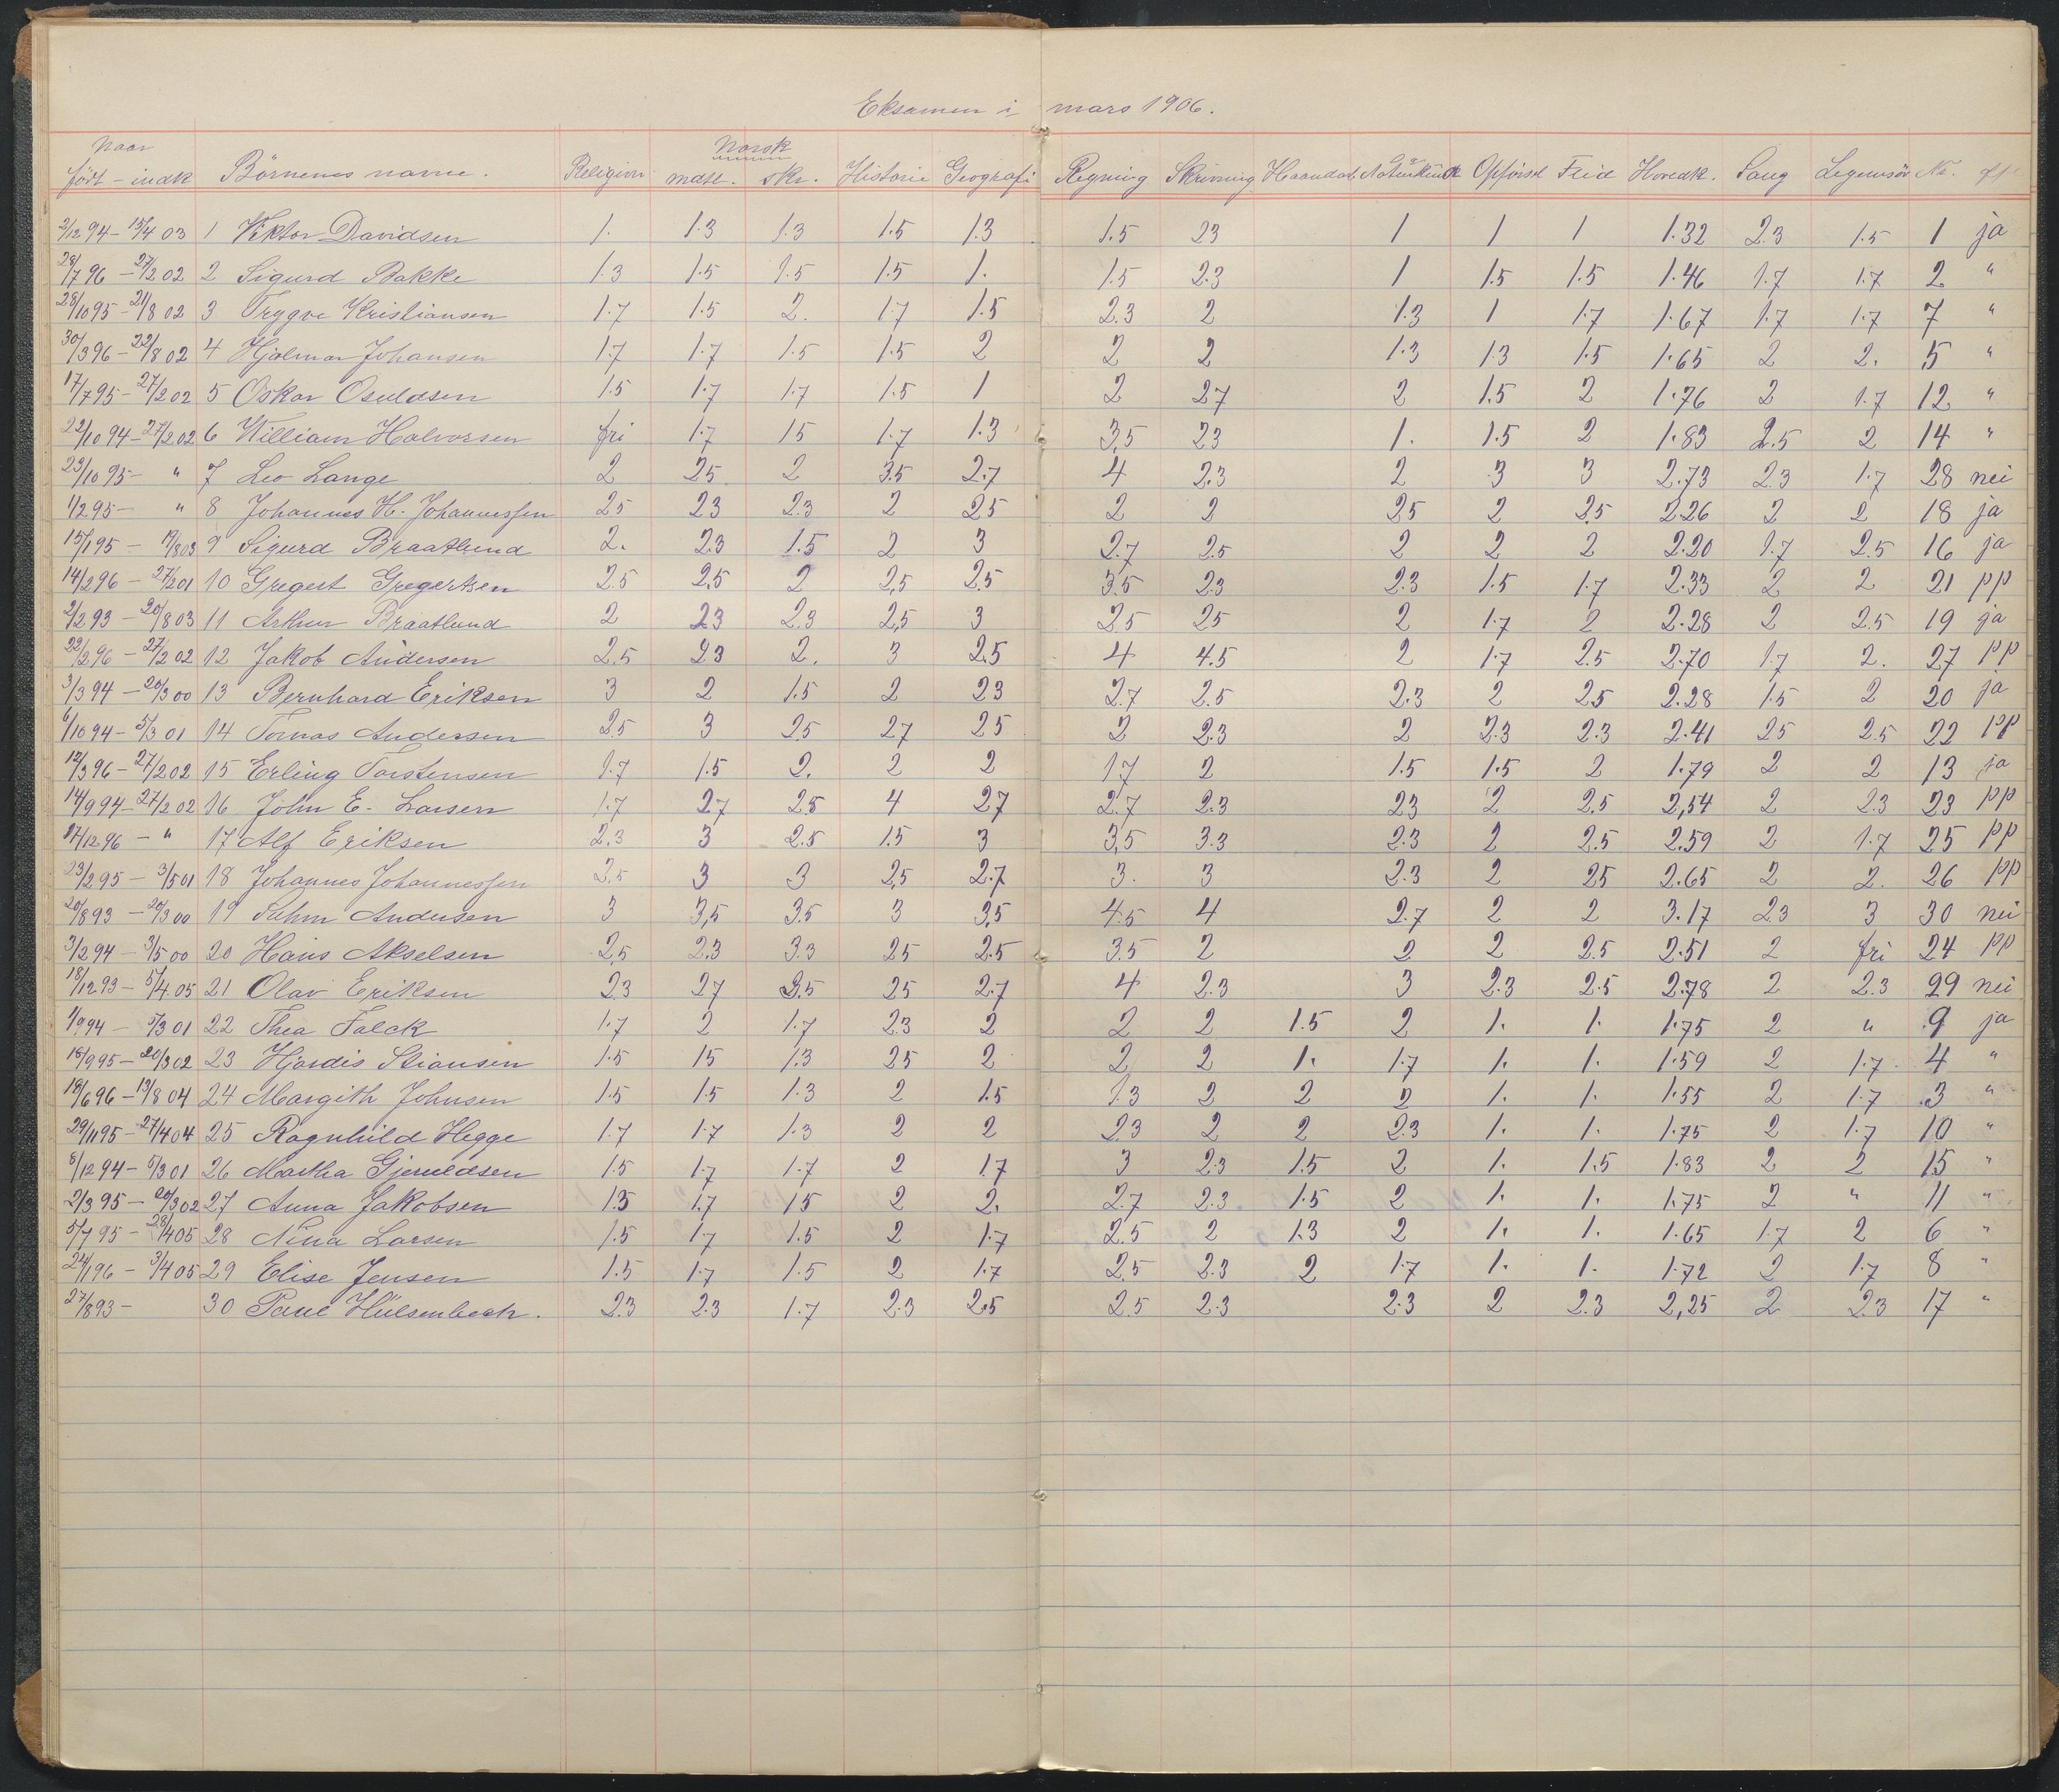 Eksamen i mars 1906.
Naar Norsk
født - indk Börnenes navne. Religion mdtl. skr. Historie Geografi Regning Skrivning Haandarb. Naturkund Opførsel Flid Hovedk. Sang Legemsøv Nr. opf.
2/12 94 - 15/4 03 1 Viktor Davidsen 1. 1.3 1.3 1.5 1.3 1.5 23 1 1 1 1.32 2.3 1.5 1 ja
28/7 96 - 27/2 02 2 Sigurd Bakke 1.3 1.5 1.5 1.5 1. 1.5 2.3 1 1.5 1.5 1.46 1.7 1.7 2 "
28/10 95 - 21/8 02 3 Trygve Kristiansen 1.7 1.5 2. 1.7 1.5 2.3 2 1.3 1 1.7 1.67 1.7 1.7 7 "
30/3 96 - 22/8 02 4 Hjalmar Johansen 1.7 1.7 1.5 1.5 2 2 2 1.3 1.3 1.5 1.65 2 2. 5 "
17/7 95 - 27/2 02 5 Oskar Osuldsen 1.5 1.7 1.7 1.5 1 2 27 2 1.5 2 1.76 2 1.7 12 "
22/10 94 - 27/2 02 6 William Halvorsen fri 1.7 15 1.7 1.3 3,5 23 1. 1.5 2 1.83 2.5 2 14 "
23/10 95 - " 7 Leo Lange 2 25 2 3.5 2.7 4 2.3 2 3 3 2.73 2.3 1.7 28 nei
1/2 95 - " 8 Johannes H. Johannessen 25 23 2.3 2 25 2 2 25 2 2.5 2.26 2 2 18 ja
15/1 95 - 19/8 03 9 Sigurd Braatlund 2. 2.3 1.5 2 3 2.7 2.5 2 2 2 2.20 1.7 2.5 16 ja
14/2 96 - 27/2 01 10 Gregert Gregertsen 2.5 2,5 2 2,5 2.5 3.5 2.3 2.3 1.5 1.7 2.33 2 2 21 pp
2/2 93 - 20/8 03 11 Arthur Braatlund 2 23 2.3 2,5 3 2.5 25 2 1.7 2 2.28 2 2.5 19 ja
22/2 96 - 27/2 02 12 Jakob Andersen 2.5 23 2. 3 2.5 4 4.5 2 1.7 2.5 2.70 1.7 2. 27 pp
3/3 94 - 20/3 00 13 Bernhard Eriksen 3 2 1.5 2 23 2.7 2.5 2.3 2 25 2.28 1.5 2 20 ja
6/10 94 - 5/3 01 14 Tomas Andersen 2.5 3 25 27 25 2 2.3 2 2.3 2.3 2.41 25 2.5 22 pp
12/3 96 - 27/2 02 15 Erling Torstensen 1.7 1.5 2. 2 2 1.7 2 1.5 1.5 2 1.79 2 2 13 ja
14/9 94 - 27/2 02 16 John E. Larsen 1.7 27 2.5 4 27 2.7 2.3 23 2 2.5 2,54 2 2.3 23 pp
17/12 96 - " 17 Alf Eriksen 2.3 3 2.5 1.5 3 3,5 3.3 2.3 2 2.5 2.59 2 1.7 25 pp
23/2 95 - 3/5 01 18 Johannes Johannessen 2.5 3 3 2,5 2.7 3. 3 2.3 2 25 2.65 2 2. 26 pp
20/8 93 - 20/3 00 19 Andersen 3 3,5 3.5 3 3,5 4.5 4 2.7 2 2 3.17 2.3 3 30 nei
3/2 94 - 3/5 00 20 Hans Akselsen 2,5 2,3 3.3 25 2.5 3.5 2 2 2 2.5 2.51 2 fri 24 pp
18/12 93 - 5/4 05 21 Olav Eriksen 2.3 27 2.5 25 2.7 4 2.3 3 2.3 2.5 2.78 2 2.3 29 nei
1/9 94 - 5/3 01 22 Thea Falck 1.7 2 1.7 23 2 2 2 1.5 2 1. 1. 1.75 2 " 9 ja
18/9 95 - 20/3 02 23 Hjørdis Stiansen 1.5 15 1.3 25 2 2 2 1. 1.7 1. 1. 1.59 2 1.7 4 "
19/6 96 - 13/8 04 24 Margith Johnsen 1.5 1.5 1.3 2 1.5 1.3 2 2 2 1. 1. 1.55 2 1.7 3 "
29/11 95 - 27/4 04 25 Ragnhild Hegge 1.7 1.7 1.3 2 2 2.3 2 2 2.3 1. 1. 1.75 2 1.7 10 "
8/12 94 - 5/3 01 26 Martha Gjeruldsen 1.5 1.7 1.7 2 1.7 3 2.3 1.5 2 1. 1.5 1.83 2 2 15 "
2/3 95 - 20/3 02 27 Anna Jakobsen 1.5 1.7 15 2 2. 2.7 2.3 1.5 2 1. 1. 1.75 2 " 11 "
5/7 95 - 28/4 05 28 Nina Larsen 1.5 1.7 1.5 2 1.7 2.5 2 1.3 2 1. 1. 1.65 1.7 2 6 "
24/1 96 - 3/4 05 29 Elise Jensen 1.5 1.7 1.5 2 1.7 2,5 2.3 2 1.7 1. 1. 1.72 2 1.7 8 "
27/8 93 - 30 Paul Hülsenbeck. 2.3 2.3 1.7 2.3 2.5 2.5 2.3 2.3 2 2.3 2,25 2 2.3 17 "